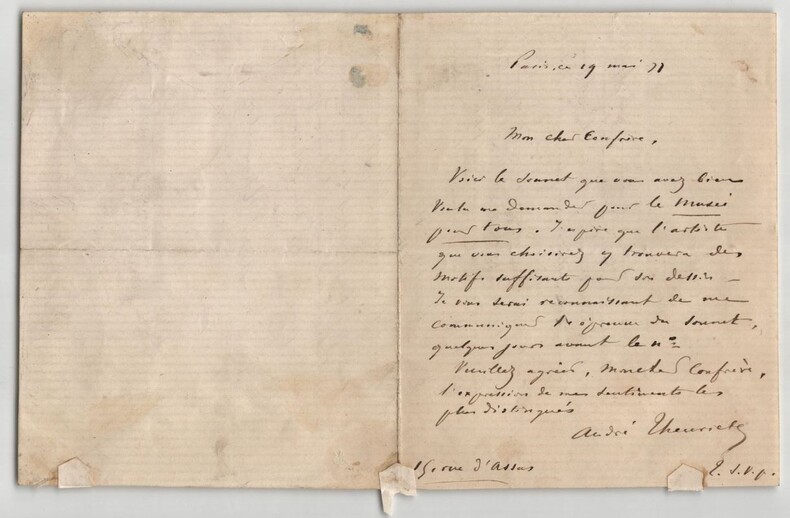 Paris, ce 19 mai 77
Mon cher Confrère,
Voici le sonnet que vous avez bien
voulu me demander pour le Musée
pour tous. J'espère que l'artiste
que vous choisirez y trouvera des
motifs suffisants pour son dessin –
Je vous serai reconnaissant de me
communiquer l'épreuve du sonnet,
quelques jours avant le nº
Veuillez agréer, Mon cher Confrère,
l'expression de mes sentiments les
plus distingués
André Theuriet
rue d'Assas
T. S. V. p.